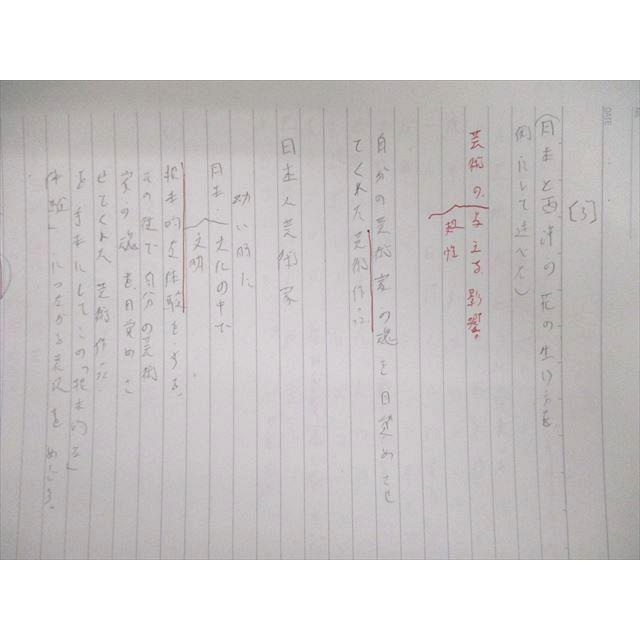 [3]
日本と西洋の花の生け方を
例にして述べた)
芸術の与える影響
根性
自分の芸術家の魂を目覚めさせ
てくれた芸術作品
日本人芸術家
幼い頃に
日本文化の中で
文明
根本的な体験をする。
その後で自分の芸術
家の魂を目覚めさ
せてくれた芸術作品
を手本にしてこの「根本的な
体験」につながる表現をめざす。
DATE